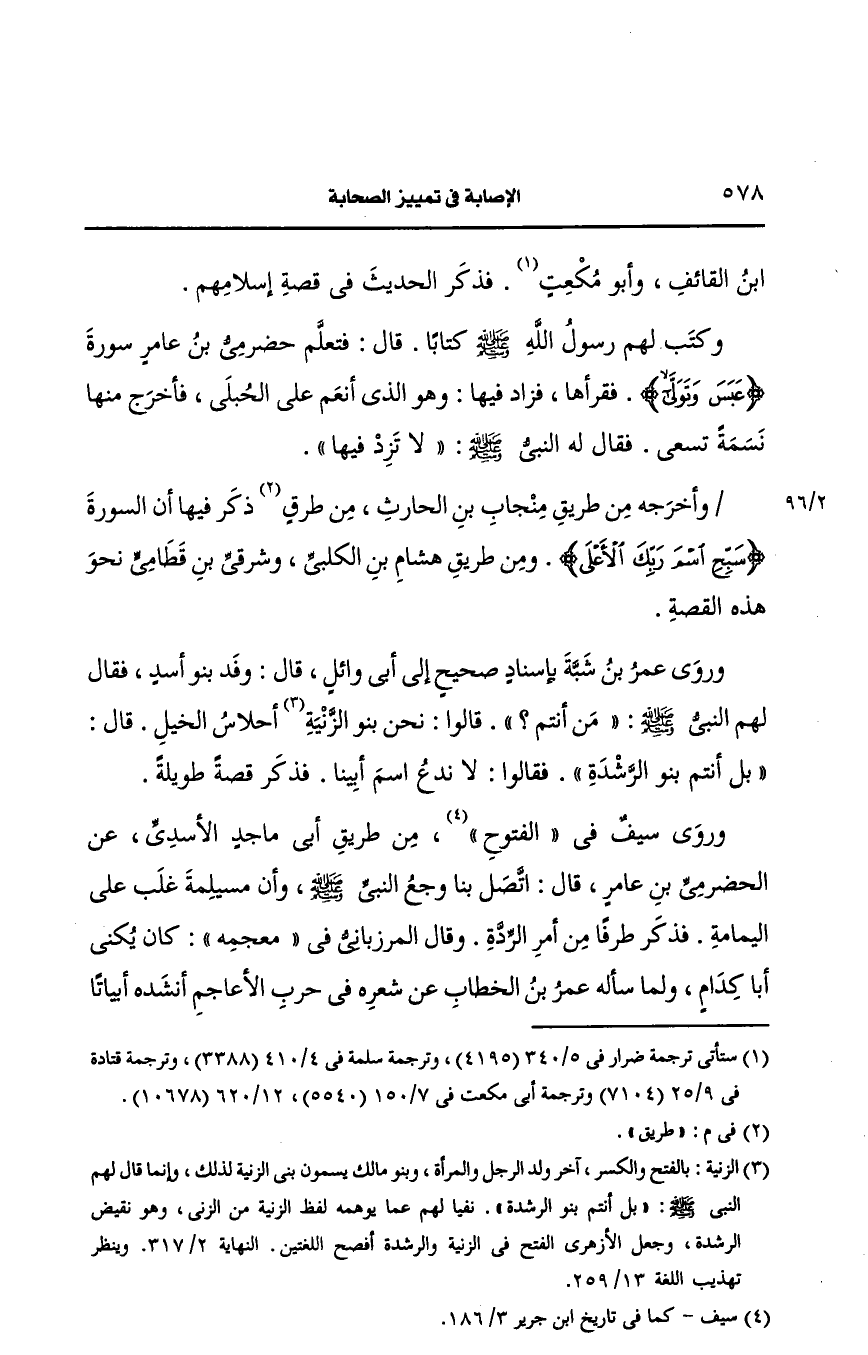 ٥٧٨ الإصابة فى تمييز الصحابة
ابنُ القائفِ ، وأبو مُكْعِتٍ(١) . فذكَر الحديثَ فى قصةِ إسلامِهم .
وكتَب لهم رسولُ اللَّهِ ﷺ كتابًا . قال : فتعلَّم حضرمِىُّ بنُ عامرٍ سورةَ
﴿عَبَسَ وَتَوَلَّىٰٓ﴾ . فقرأها ، فزاد فيها : وهو الذى أنعَم على الحُبلَى ، فأخرَج منها
نَسَمَةً تسعى . فقال له النبىُّ ﷺ : « لا تَزِدْ فيها» .
/ وأخرَجه مِن طريقِ مِنْجابِ بنِ الحارثِ ، مِن طرقٍ(٢) ذكَر فيها أن السورةَ ٩٦/٢
﴿سَبِّحِ ٱسْمَ رَبِّكَ ٱلْأَعْلَى﴾ . ومِن طريقِ هشامِ بنِ الكلبىِّ ، وشرقىِّ بنِ قَطَامِىٍّ نحوَ
هذه القصةِ .
وروَى عمرُ بنُ شَبَّةَ بإسنادٍ صحيحٍ إلى أبى وائلٍ ، قال : وفَد بنو أسدٍ ، فقال
لهم النبىُّ ﷺ : « مَن أنتم ؟ » . قالوا : نحن بنو الزَّنْيَةِ(٣) أحلاسُ الخيلِ . قال :
« بل أنتم بنو الرَّشْدَةِ » . فقالوا : لا ندعُ اسمَ أبِينا . فذكَر قصةً طويلةً .
وروَى سيفٌ فى « الفتوحِ »(٤) ، مِن طريقِ أبى ماجدٍ الأسدِىِّ ، عن
الحضرمِىِّ بنِ عامرٍ ، قال : اتَّصَل بنا وجعُ النبىِّ ﷺ ، وأن مسيلِمةَ غلَب على
اليمامةِ . فذكَر طرفًا مِن أمرِ الرِّدَّةِ . وقال المرزبانِىُّ فى « معجمِه » : كان يُكنى
أبا كِدَامٍ ، ولما سأله عمرُ بنُ الخطابِ عن شعرِه فى حربِ الأعاجمِ أنشَده أبياتًا
(١) ستأتى ترجمة ضرار فى ٣٤٠/٥ (٤١٩٥) ، وترجمة سلمة فى ٤١٠/٤ (٣٣٨٨) ، وترجمة قتادة
فى ٢٥/٩ (٧١٠٤) وترجمة أبى مكعت فى ١٥٠/٧ (٥٥٤٠) ، ٦٢٠/١٢ (١٠٦٧٨) .
(٢) فى م : « طريق» .
(٣) الزنية : بالفتح والكسر ، آخر ولد الرجل والمرأة ، وبنو مالك يسمون بنى الزنية لذلك ، وإنما قال لهم
النبى ﷺ : «بل أنتم بنو الرشدة» . نفيا لهم عما يوهمه لفظ الزنية من الزنى ، وهو نقيض
الرشدة ، وجعل الأزهرى الفتح فى الزنية والرشدة أفصح اللغتين . النهاية ٣١٧/٢. وينظر
تهذيب اللغة ٢٥٩/١٣.
(٤) سيف - كما فى تاريخ ابن جرير ١٨٦/٣.